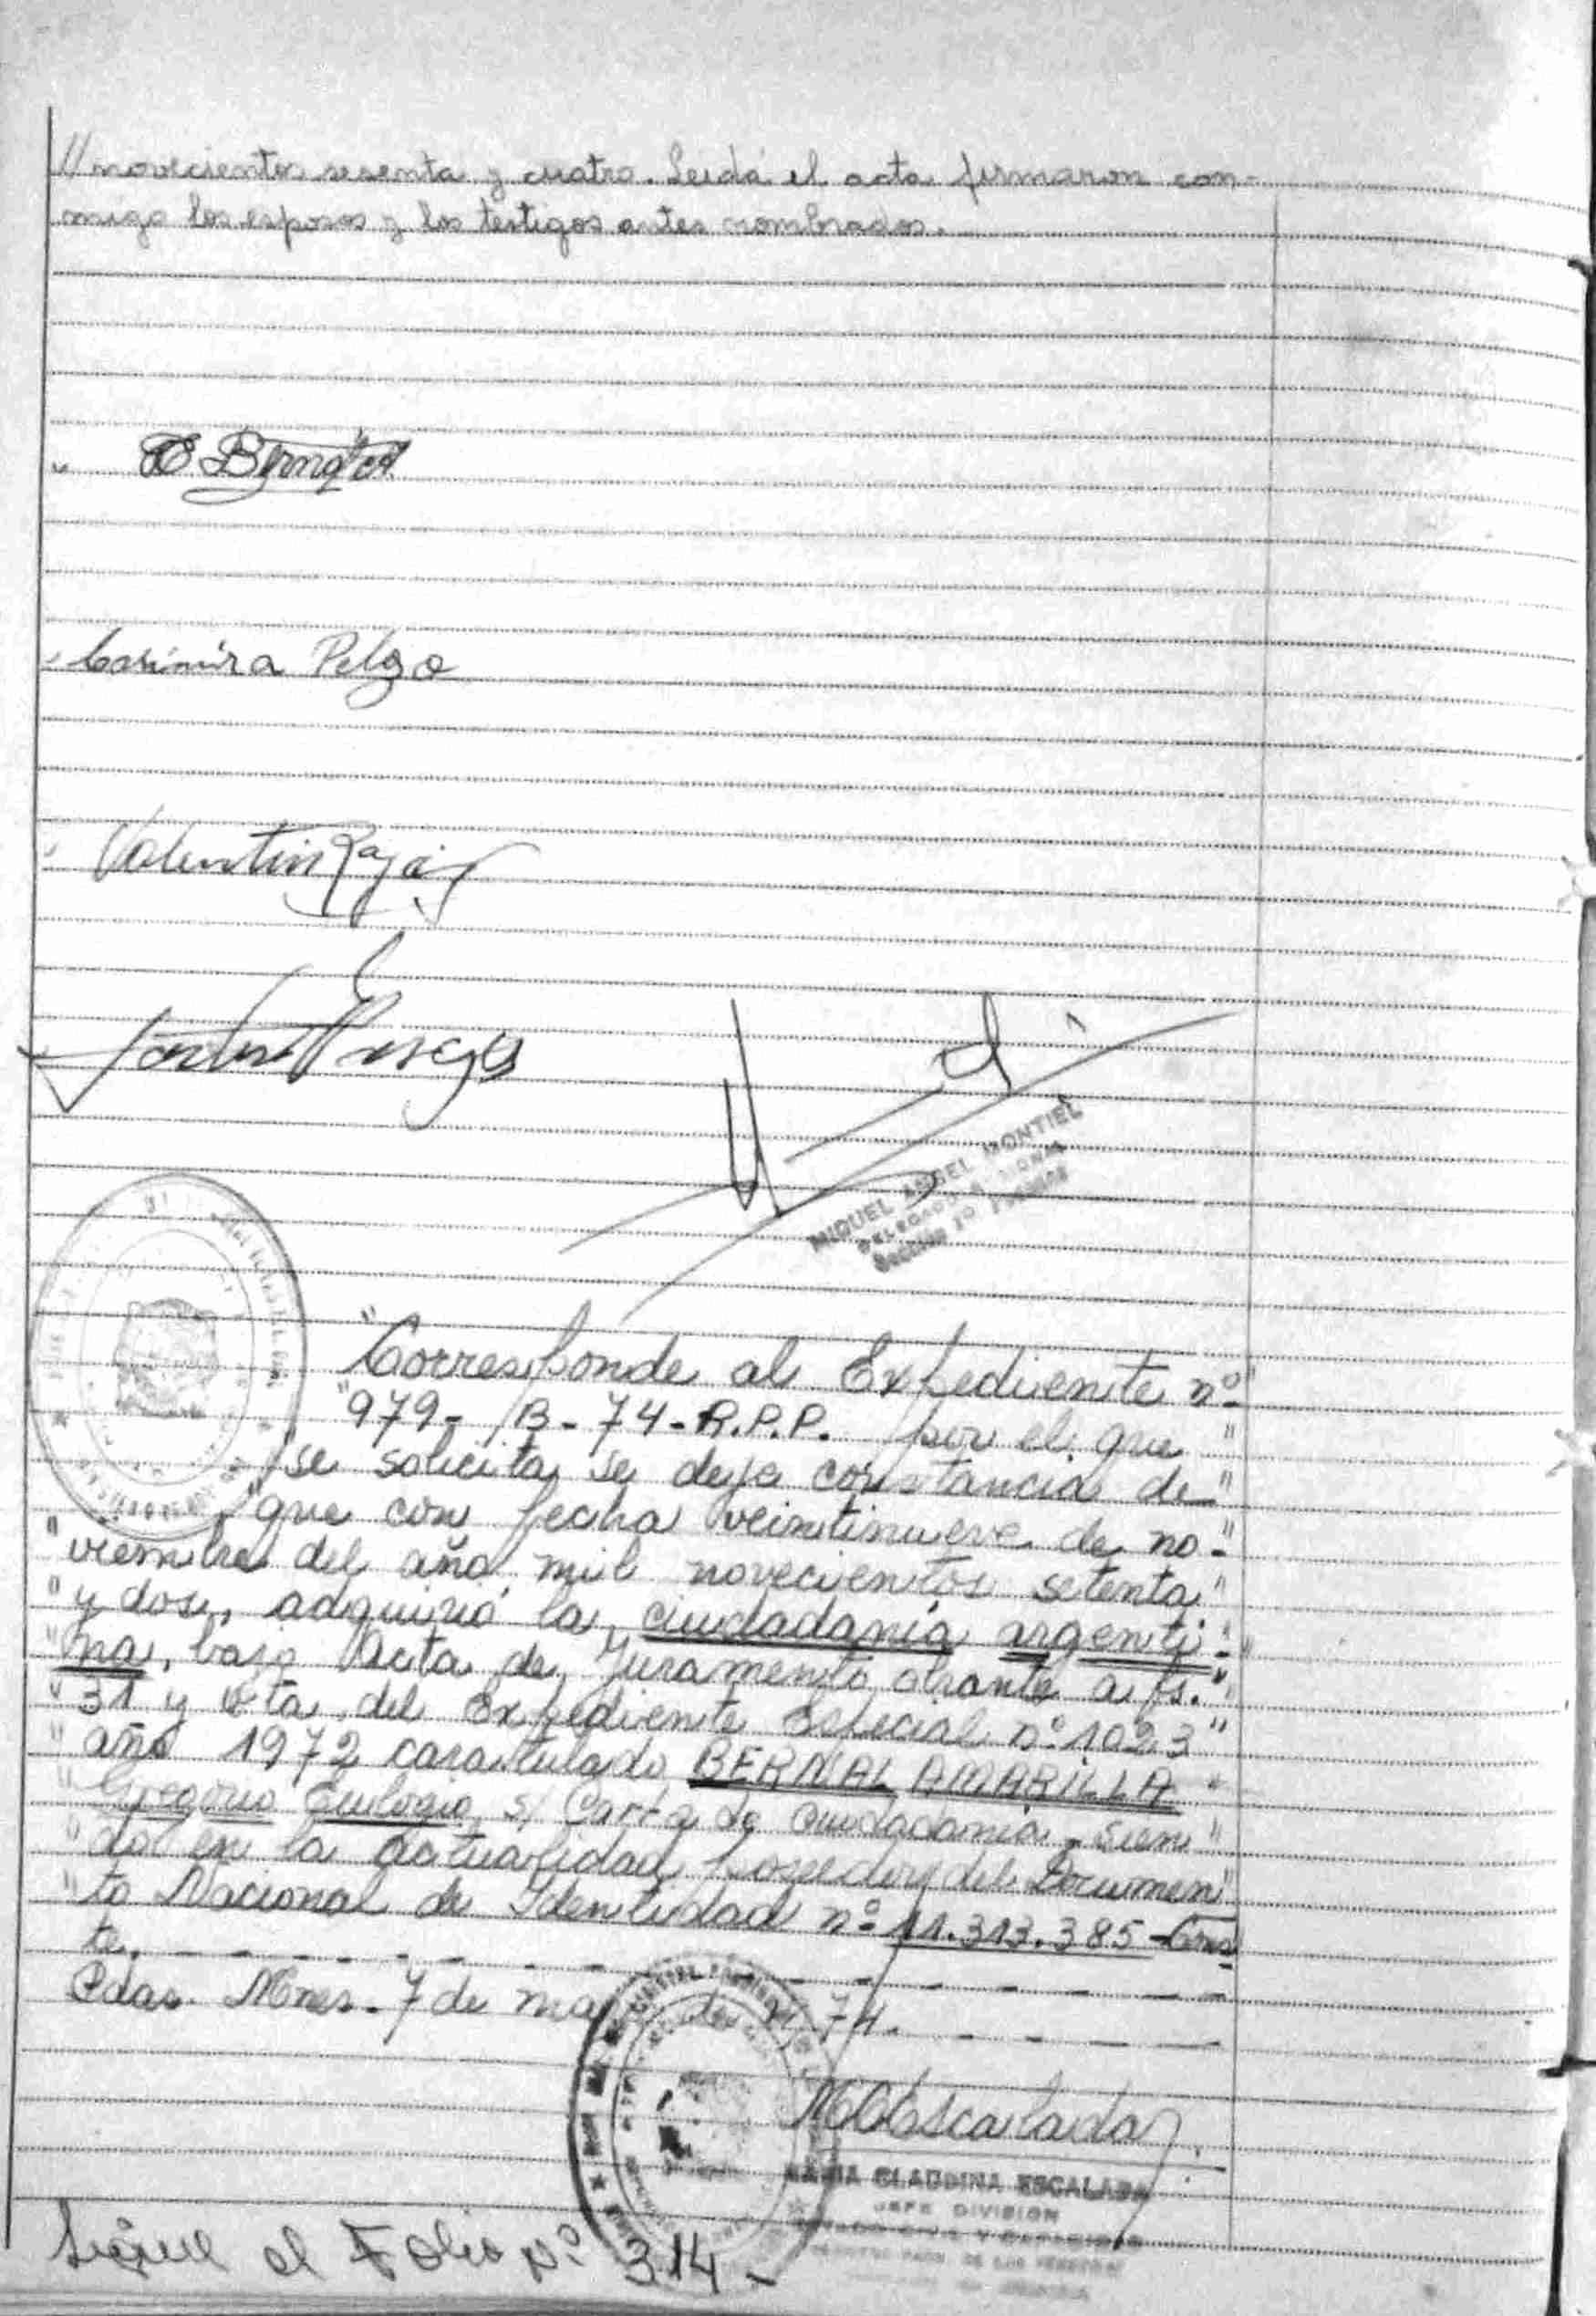 // novecientos sesenta y cuatro. Leída el acta firmaron con-
migo los esposos y los testigos antes nombrados.
Casimira Pelzo
Valentin
MIGUEL ANGEL MONTIEL
"Corresponde al Expediente nº"
"979- B- 74- R.P.P. por el que "
"se solicita se deje constancia de "
"que con fecha veintinueve de no-"
"viembre del año mil novecientos setenta"
"y dos, adquirió la ciudadanía argenti-"
"na, bajo Acta de Juramento obrante a fs."
"31 y vta. del Expediente Especial nº 1023"
"año 1972 caratulado BERNAL AMARILLA "
"Gregorio Eulogio s/ Carta de Ciudadanía - Sien"
"do en la actualidad poseedor del Documen"
"to Nacional de Identidad nº 11.313.385 - Cons
te. - - - - - - - - -
Pdas. Mnes. 7 de de 74. - - - -
MCEscalada
MARIA CLAUDINA ESCALADA
JEFE DIVISION
Sigue al Folio Nº 314 -